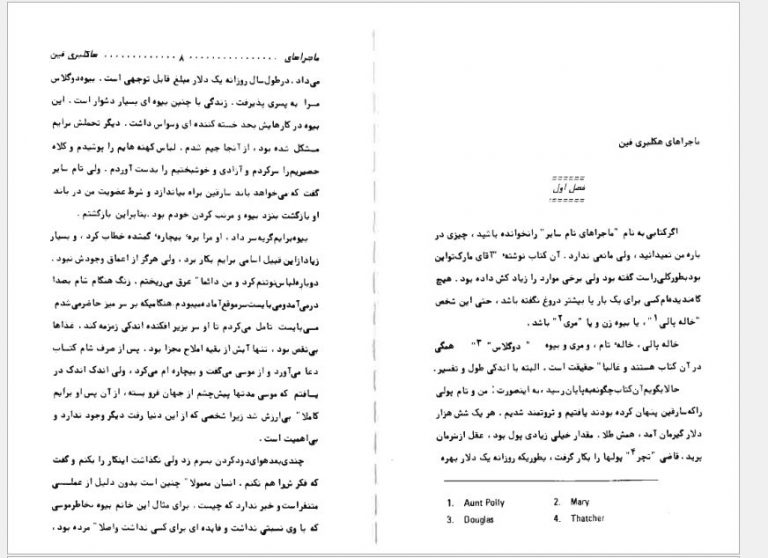 ماجراهای هکلبری فین
فصل اول
اگر کتابی به نام "ماجراهای تام سایر" را نخوانده باشید ، چیزی در
باره من نمیدانید ، ولی مانعی ندارد . آن کتاب نوشته "آقای مارک تواین
بود بطور کلی راست گفته بود ولی برخی موارد را زیاد کش داده بود . هیچ
گاه ندیده ام کسی برای یک بار یا بیشتر دروغ نگفته باشد ، حتی این شخص
"خاله پالی¹" ، یا بیوه زن و یا "مری²" باشد .
خاله پالی ، خاله تام ، و مری و بیوه " دوگلاس ³" همگی
در آن کتاب هستند و غالبا" حقیقت است . البته با اندکی طول و تفسیر .
حالا بگویم آن کتاب چگونه به پایان رسید ، به اینصورت : من و تام پولی
را که سارقین پنهان کرده بودند یافتیم و ثروتمند شدیم . هر یک شش هزار
دلار گیرمان آمد ، همش طلا . مقدار خیلی زیادی پول بود ، عقل از سرمان
پرید . قاضی "تچر⁴" پولها را بکار گرفت ، بطوریکه روزانه یک دلار بهره
1. Aunt Polly 2. Mary
3. Douglas 4. Thatcher
ماجراهای ............... ۸ ............... هاکلبری فین
می داد . در طول سال روزانه یک دلار مبلغ قابل توجهی است . بیوه دوگلاس
مرا به پسری پذیرفت . زندگی با چنین بیوه ای بسیار دشوار است . این
بیوه در کارهایش بحد خسته کننده ای وسواس داشت . دیگر تحملش برایم
مشکل شده بود ، از آنجا جیم شدم . لباس کهنه هایم را پوشیدم و کلاه
حصیریم را سر کردم و آزادی و خوشبختیم را بدست آوردم . ولی تام سایر
گفت که می خواهد باند سارقین براه بیاندازد و شرط عضویت من در باند
او بازگشت بنزد بیوه و مرتب کردن خودم بود ، بنابراین بازگشتم .
بیوه برایم گریه سر داد ، او مرا بره بیچاره گمشده خطاب کرد ، و بسیار
زیاد از این قبیل اسامی برایم بکار برد ، ولی هرگز از اعماق وجودش نبود .
دوباره لباس نو تنم کرد و من دائما" عرق می ریختم . زنگ هنگام شام بصدا
در می آمد و می بایست سر موقع آماده میبودم هنگامیکه بر سر میز حاضر می شدم
می بایست تامل می کردم تا او سر بزیر افکنده اندکی زمزمه کند . غذاها
بی نقص بود ، تنها آبش از بقیه املاح مجزا بود . پس از صرف شام کتاب
دعا می آورد و از موسی می گفت و بیچاره ام می کرد ، ولی اندک اندک در
یافتم که موسی مدتها پیش چشم از جهان فرو بسته ، از آن پس او برایم
کاملا" بی ارزش شد زیرا شخصی که از این دنیا رفت دیگر وجود ندارد و
بی اهمیت است .
چندی بعد هوای دود کردن بسرم زد ولی نگذاشت اینکار را بکنم و گفت
که فکرش را هم نکنم . انسان معمولا" چنین است بدون دلیل از عملی
متنفر است و خبر ندارد که چیست . برای مثال این خانم بیوه بخاطر موسی
که با وی نسبتی نداشت و فایده ای برای کسی نداشت واصلا" مرده بود ،